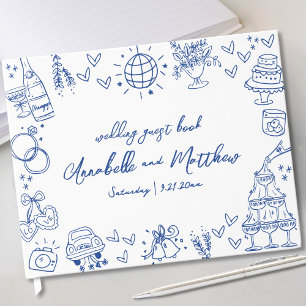 wedding guest book
Annabelle and Matthew
Saturday | 9.21.20xx